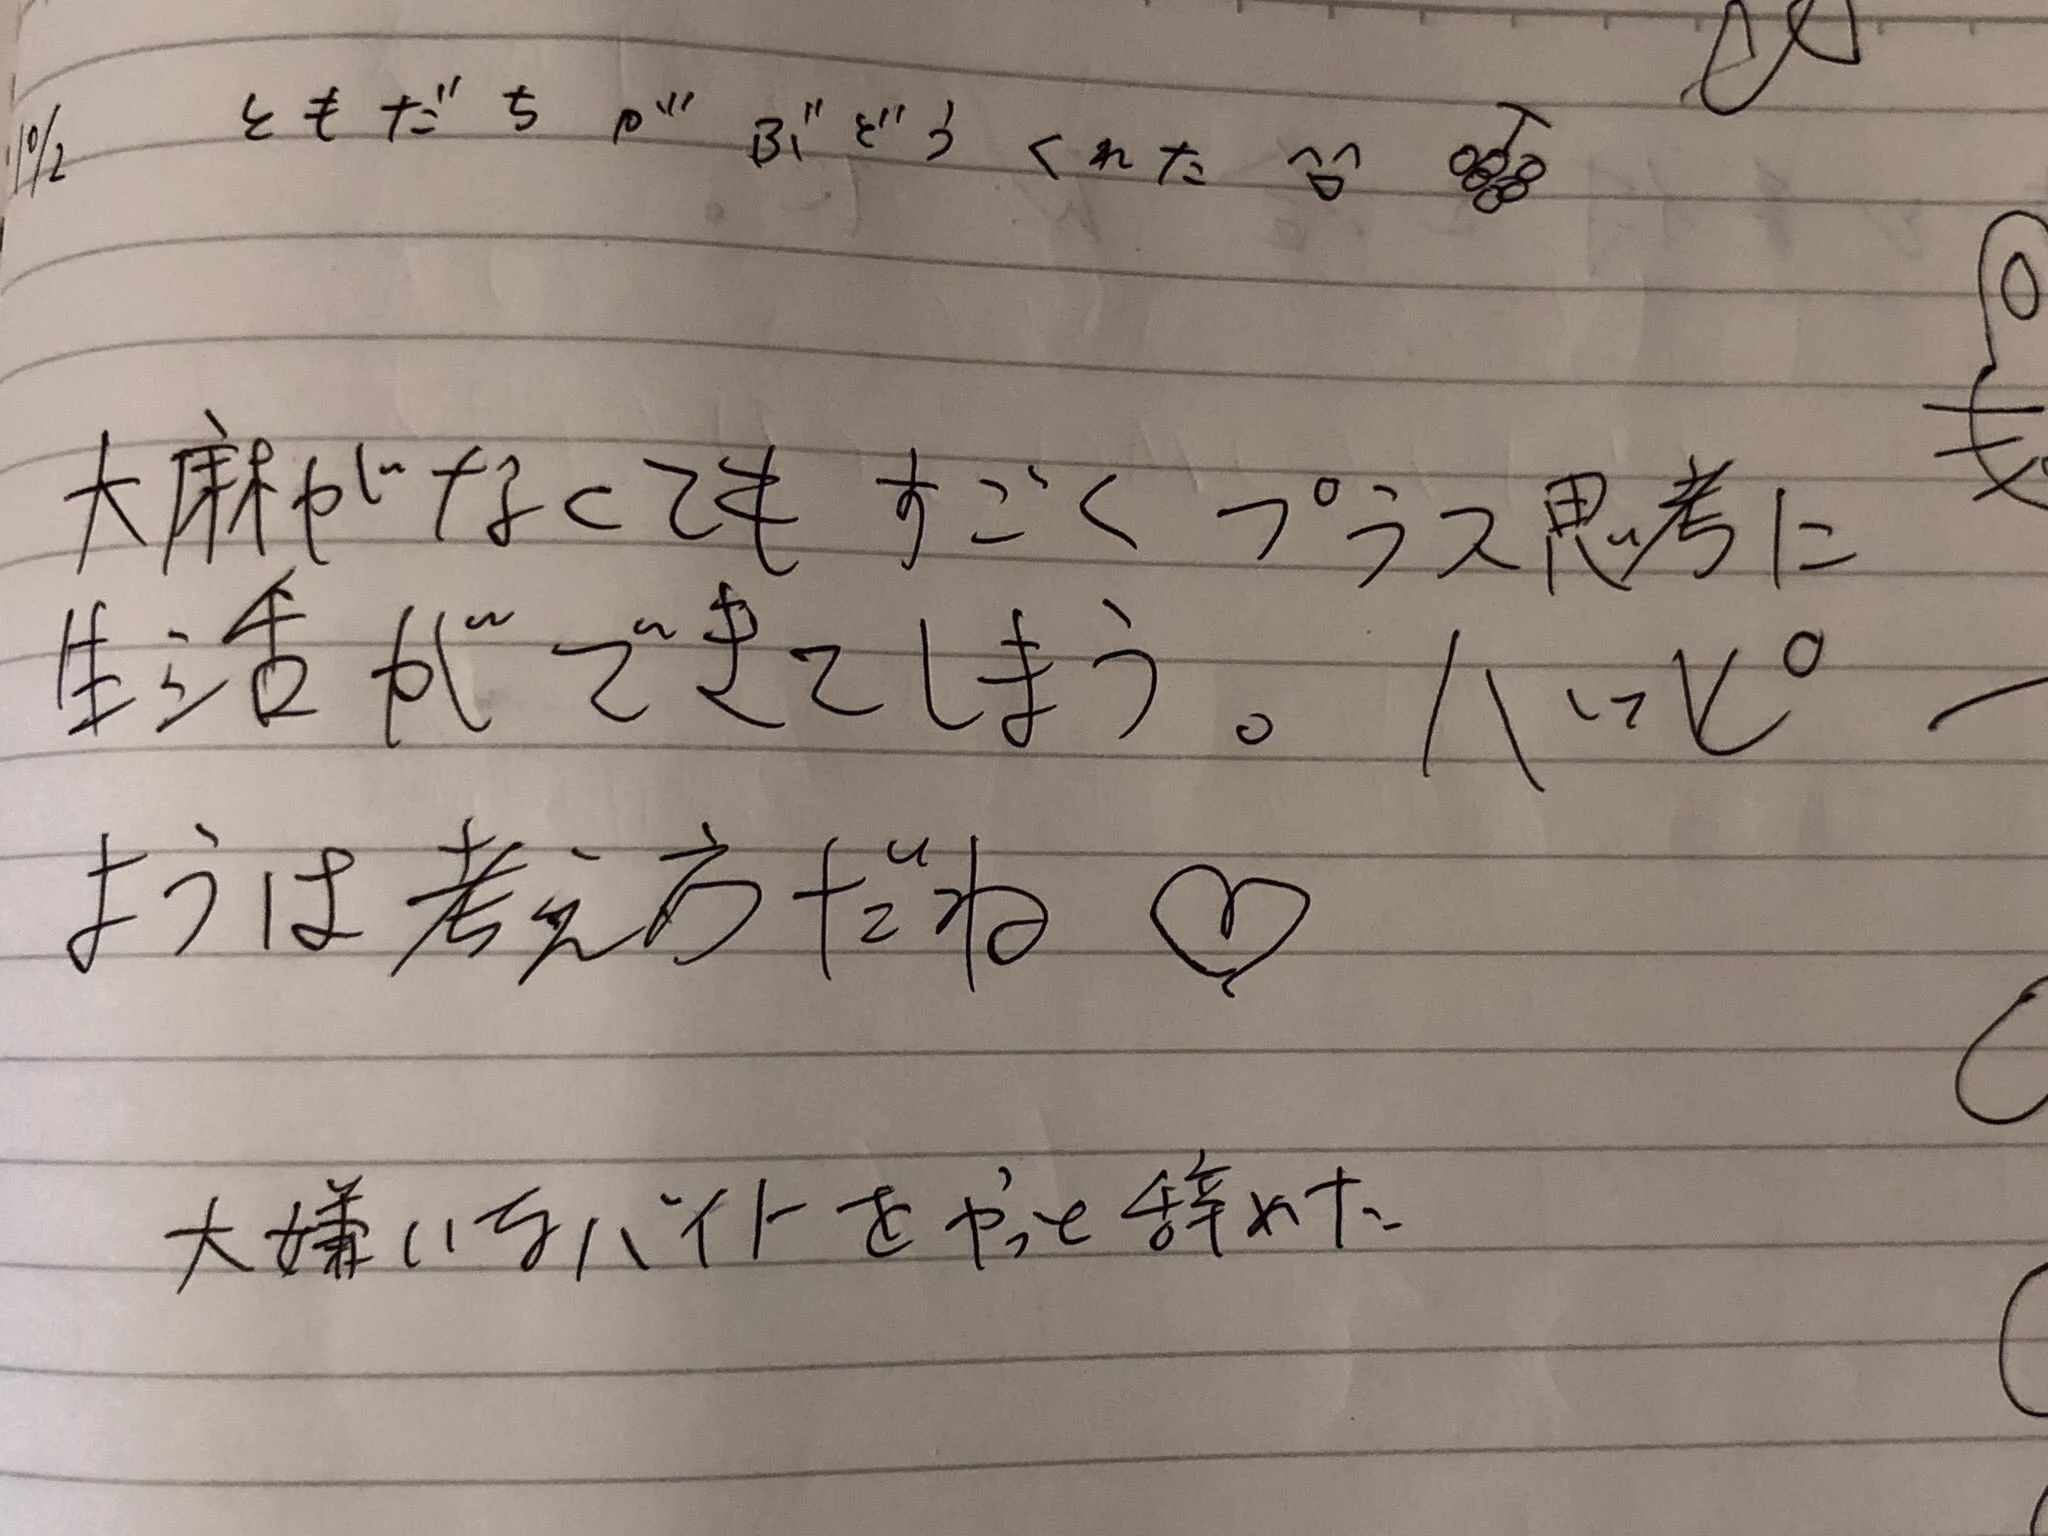 10/2 ともだちがぶどうくれた
大麻がなくてもすごくプラス思考に
生活ができてしまう。ハッピー
ようは考え方だね♡
大嫌いなバイトをやっと辞めた